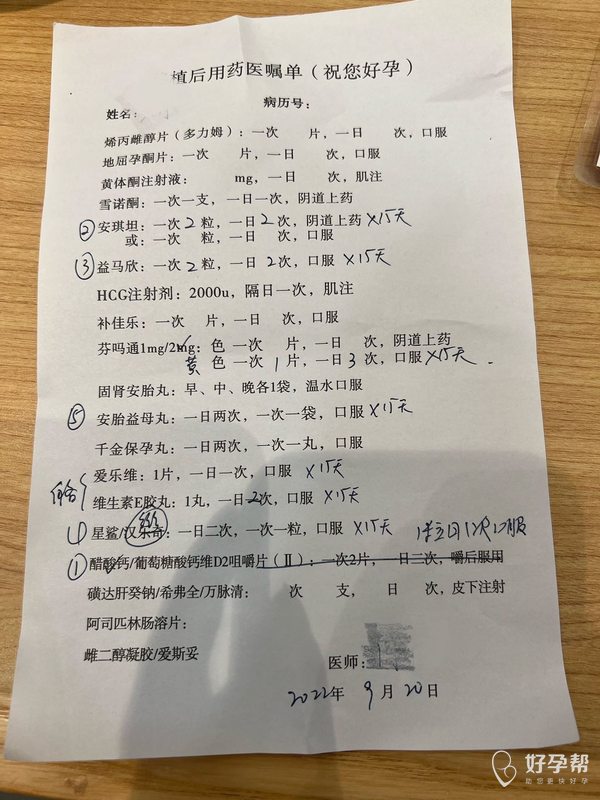 植后用药医嘱单（祝您好孕）
姓名： 病历号：
烯丙雌醇片（多力姆）：一次 片，一日 次，口服
地屈孕酮片：一次 片，一日 次，口服
黄体酮注射液： mg，一日 次，肌注
雪诺酮：一次一支，一日一次，阴道上药
② 安琪坦：一次 2 粒，一日 2 次，阴道上药 ×15天
或：一次 粒，一日 次，口服
③ 益马欣：一次 2 粒，一日 2 次，口服 ×15天
HCG注射剂：2000u，隔日一次，肌注
补佳乐：一次 片，一日 次，口服
芬吗通1mg/2mg：色 一次 片，一日 次，阴道上药
黄 色 一次 1 片，一日 3 次，口服 ×15天
固肾安胎丸：早、中、晚各1袋，温水口服
⑤ 安胎益母丸：一日两次，一次一袋，口服 ×15天
千金保孕丸：一日两次，一次一丸，口服
爱乐维：1片，一日一次，口服 ×15天
维生素E胶丸：1丸，一日2次，口服 ×15天
星鲨/汉乐奇：一日二次，一次一粒，口服 ×15天
① 醋酸钙/葡萄糖酸钙维D2咀嚼片（Ⅱ）：一次2片，一日二次，嚼后服用
磺达肝癸钠/希弗全/万脉清： 次 支， 日 次，皮下注射
阿司匹林肠溶片：
雌二醇凝胶/爱斯妥
医师：
2022年 9 月 20 日
好孕帮
助您更快好孕